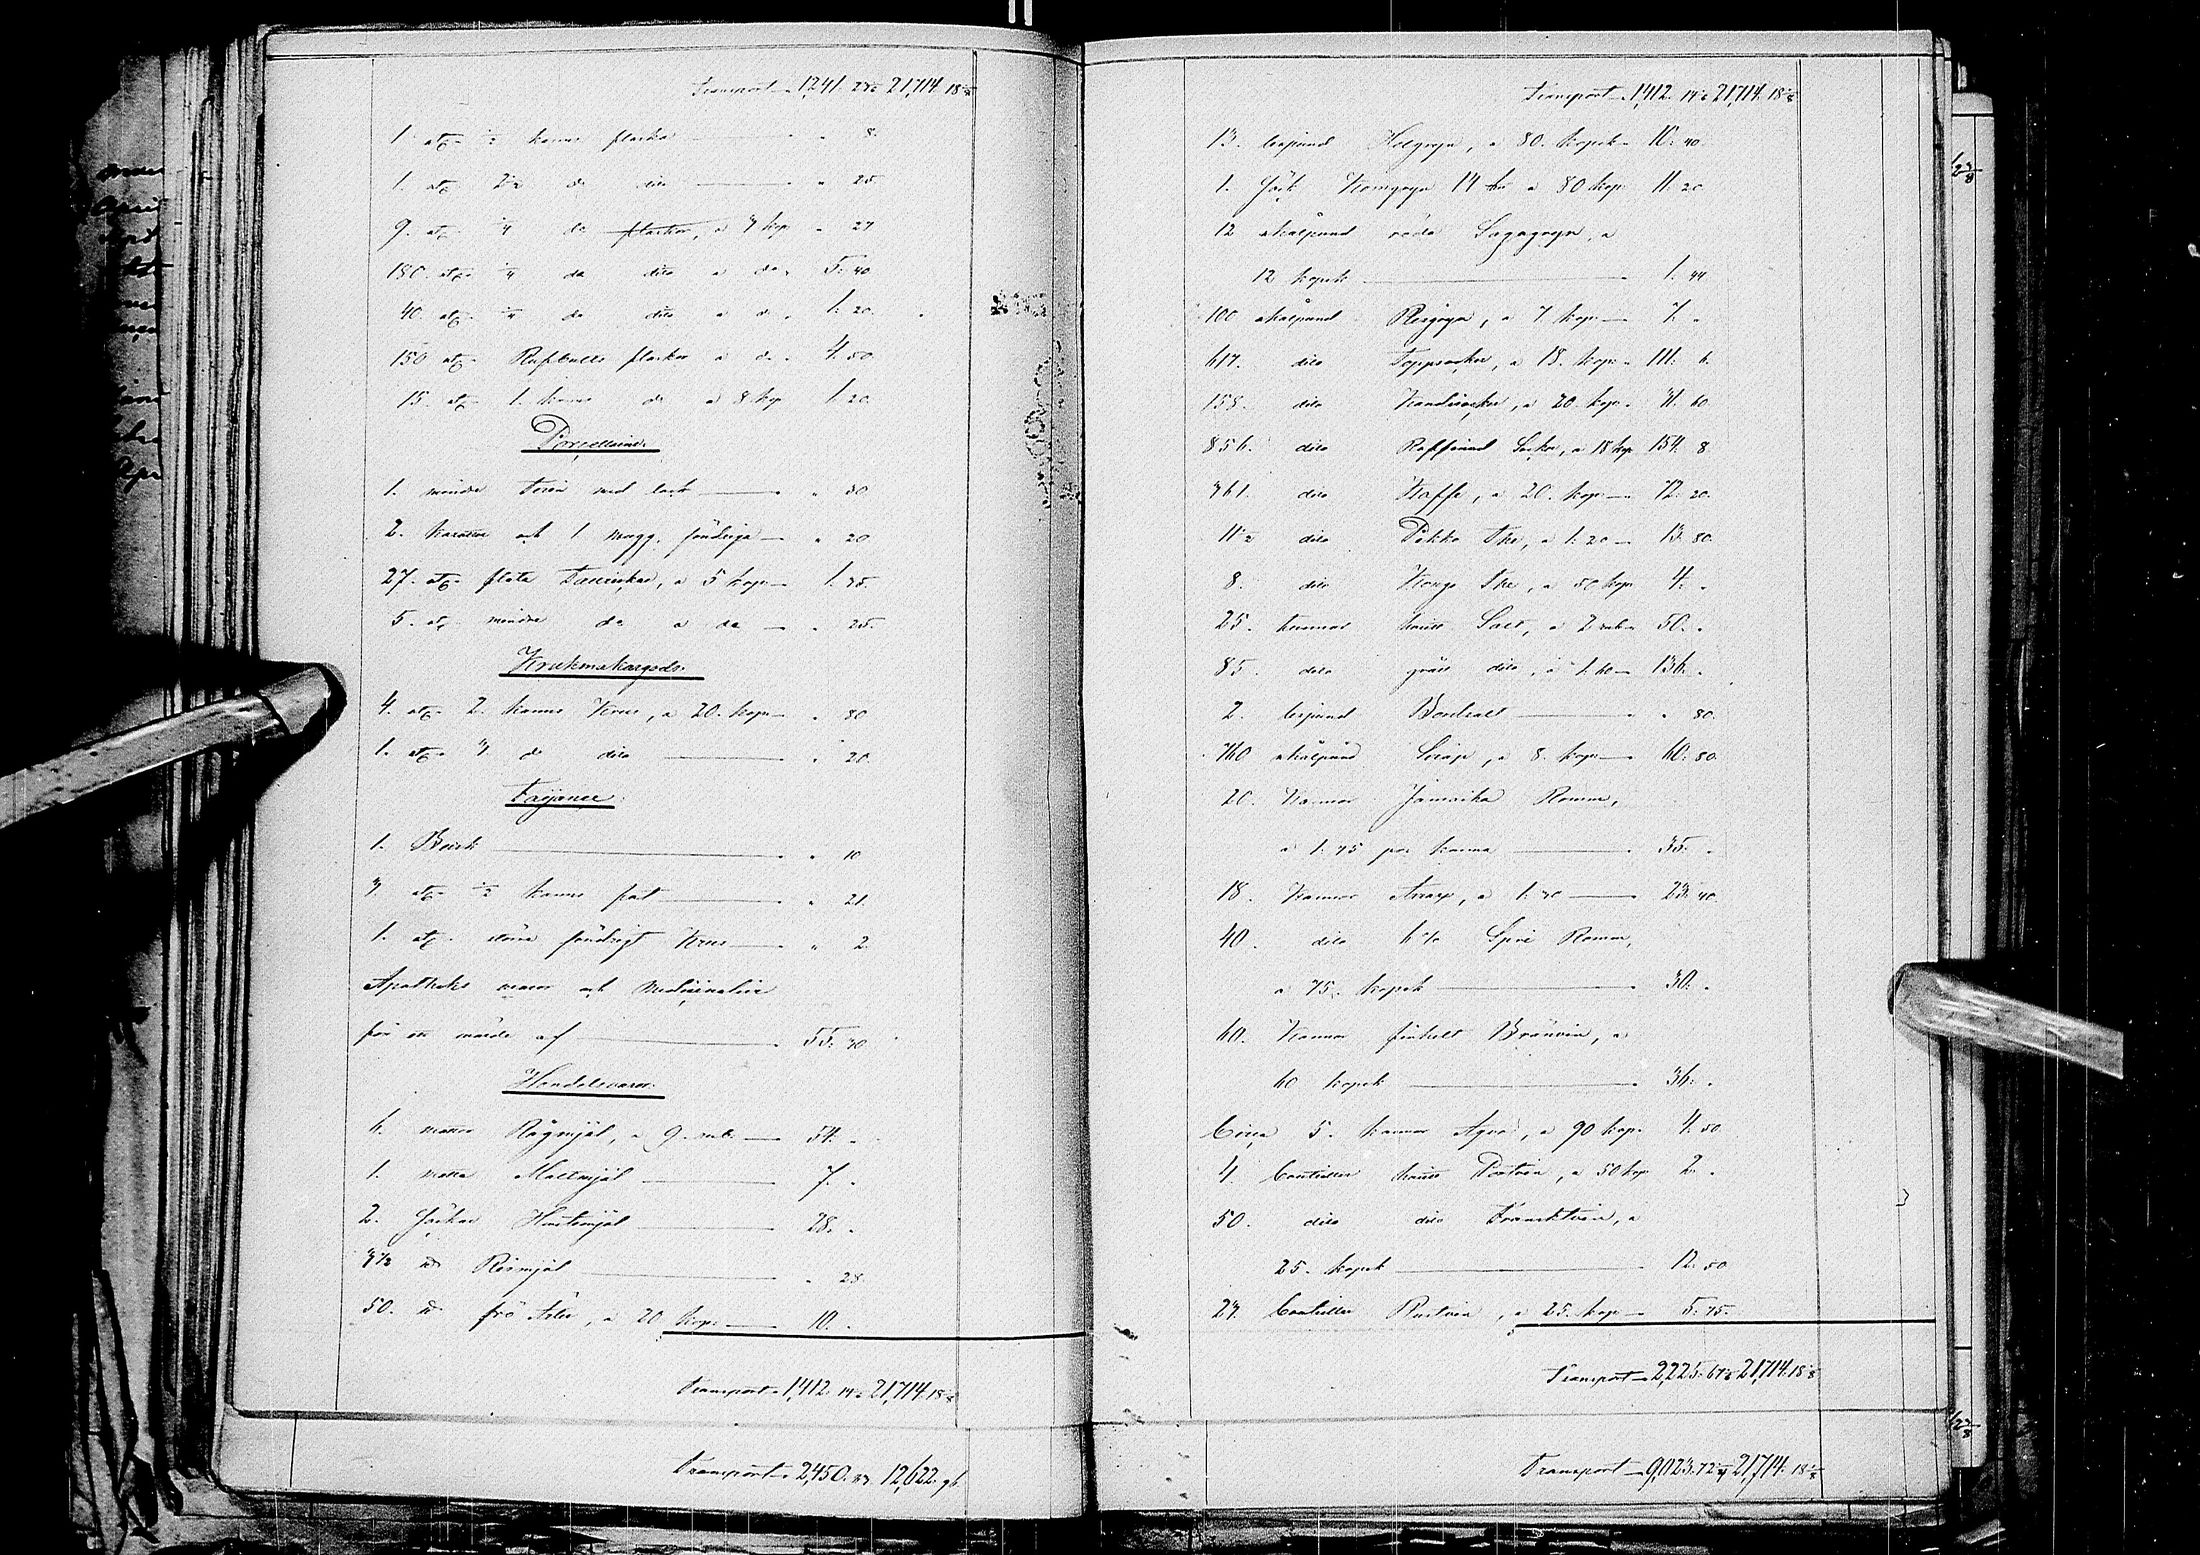 Transport 1,241. 21,714. 18
1. st. ½ kanns flaska " 8.
1. st. 2½ do dito " 25.
9. st. ¼ do flaskor, a 3 kop. " 27
180. st. ¼ do dito a do 5: 40
40. st. ¼ do dito a do 1: 20.
150 st. flaskor a do 4: 50.
15. st. 1. kanns do a 8 kop 1: 20.
Porcellaine.
1. mindre Terin med lock " 30.
2. och 1 mugg, söndriga " 20
27. st. flata Tallrickar, a 5 kop. 1: 35.
5. st. mindre do a do " 25.
Krukmakargods.
4. st. 2. kanns Krus, a 20. kop. " 80
1. st. 3 d dito " 20.
Fayance.
1. Burk " 10
3 st. ½ kanns fat " 21.
1. st. större söndrigt Krus " 2.
Apotheks varor och Medicinalier
för ett värde af 55: 30
Handelsvaror.
6. mattor Rågmjöl, a 9. rub. 54. "
1. matta Maltmjöl 7. "
2. Säckar Hvetemjöl 28. "
3½ Rismjöl " 28.
50. frö, a 20 kop. 10. "
Transport 1,412. 14 21,714. 18
Transport 2,450. 83 12,622. 96
Transport 1,412. 14 21,714. 18
13. lispund Helgryn, a 80. kopek 10: 40.
1. Säck Korngryn 14 a 80 kop. 11. 20
12 skålpund röda Sagogryn, a
12 kopek 1. 44.
100 skålpund Risgryn, a 7. kop. 7. "
617. dito Toppsocker, a 18. kop. 111. 6.
158. dito Kandisocker, a 20. kop. 31. 60.
856. dito Raffinad Socker, a 18 kop. 154. 8.
361. dito Kaffe, a 20. kop. 72. 20.
11½ dito Pekko The, a 1: 20 13. 80.
8. dito Kongo The, a 50 kop. 4. "
25. tunnor hvitt Salt, a 2 rub. 50. "
85. dito grått dito, a 1: 60 136. "
2. lispund Bordsalt " 80.
760 skålpund Sirap, a 8. kop. 60: 80.
20. Kannor Jamaika Romm,
a 1: 75 per kanna 35. "
18. Kannor Arrac, a 1: 30 23: 40.
40. dito 6% Romm,
a 75. kopek 30. "
60. Kannor finkelt Bränvin, a
60 kopek 36. "
Circa 5. kannor a 90 kop. 4. 50.
4. bouteiller hvitt Portvin, a 50 kop. 2. "
50. dito dito Fransktvin, a
25. kopek 12. 50
23. bouteiller a 25. kop. 5: 75.
Transport 2,225. 67 21,714. 18
Transport 9,023. 72 21,714. 18